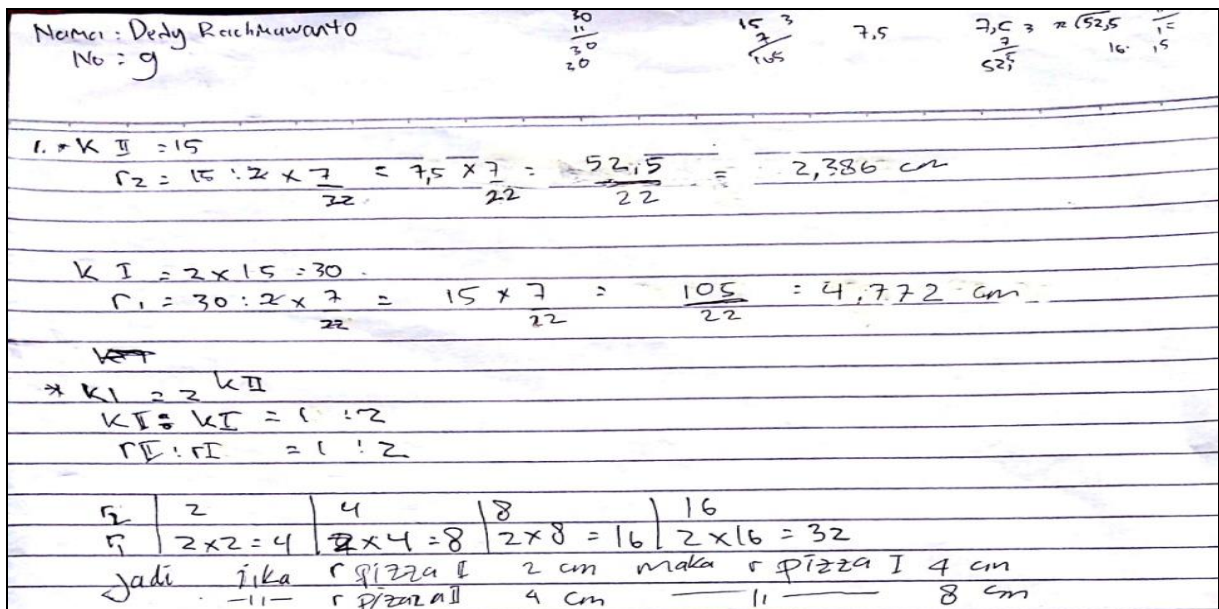 Nama : Dedy Rachmawanto
No : 9
30
11
30
30
15 3
7
105
7,5
7,5 3
7
52,5
22√52,5
16. 15
1. * K II = 15
r2 = 15 : 2 × 7/22 = 7,5 × 7/22 = 52,5/22 = 2,386 cm
K I = 2 × 15 = 30.
r1 = 30 : 2 × 7/22 = 15 × 7/22 = 105/22 = 4,772 cm
* KI = 2 KII
KII : KI = 1 : 2
rII : rI = 1 : 2
r2 | 2 | 4 | 8 | 16
r1 | 2×2=4 | 2×4=8 | 2×8=16 | 2×16=32
Jadi jika r pizza I 2 cm maka r pizza I 4 cm
—11— r pizza II 4 cm —11— 8 cm